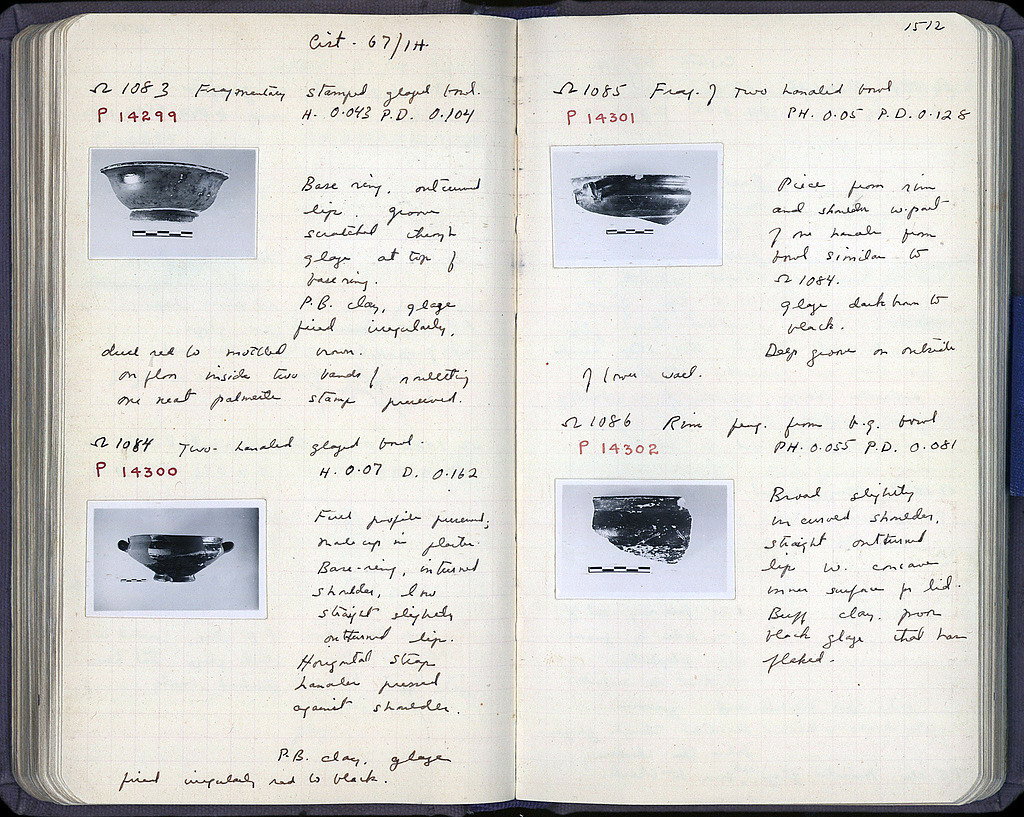 Cist. 67/1H
Ω 1083 Fragmentary stamped glazed bowl.
P 14299 H. 0.043 P.D. 0.104
Base ring, outcurved
lip. groove
scratched through
glaze at top of
base ring.
P.B. clay, glaze
fired irregularly,
dull red to mottled brown.
on floor inside two bands of rouletting
one neat palmette stamp preserved.
Ω 1084 Two-handled glazed bowl.
P 14300 H. 0.07 D. 0.162
Full profile preserved;
made up in plaster.
Base-ring, inturned
shoulder, low
straight slightly
outturned lip.
Horizontal strap
handles pressed
against shoulder.
P.B. clay, glaze
fired irregularly red to black.
1512
Ω 1085 Frag. of two handled bowl
P 14301 PH. 0.05 P.D. 0.128
Piece from rim
and shoulder w. part
of one handle from
bowl similar to
Ω 1084.
glaze dark brown to
black.
Deep groove on outside
of lower wall.
Ω 1086 Rim frag. from b.g. bowl
P 14302 PH. 0.055 P.D. 0.081
Broad slightly
incurved shoulder,
straight outturned
lip w. concave
inner surface for lid.
Buff clay. poor
black glaze that has
flaked.